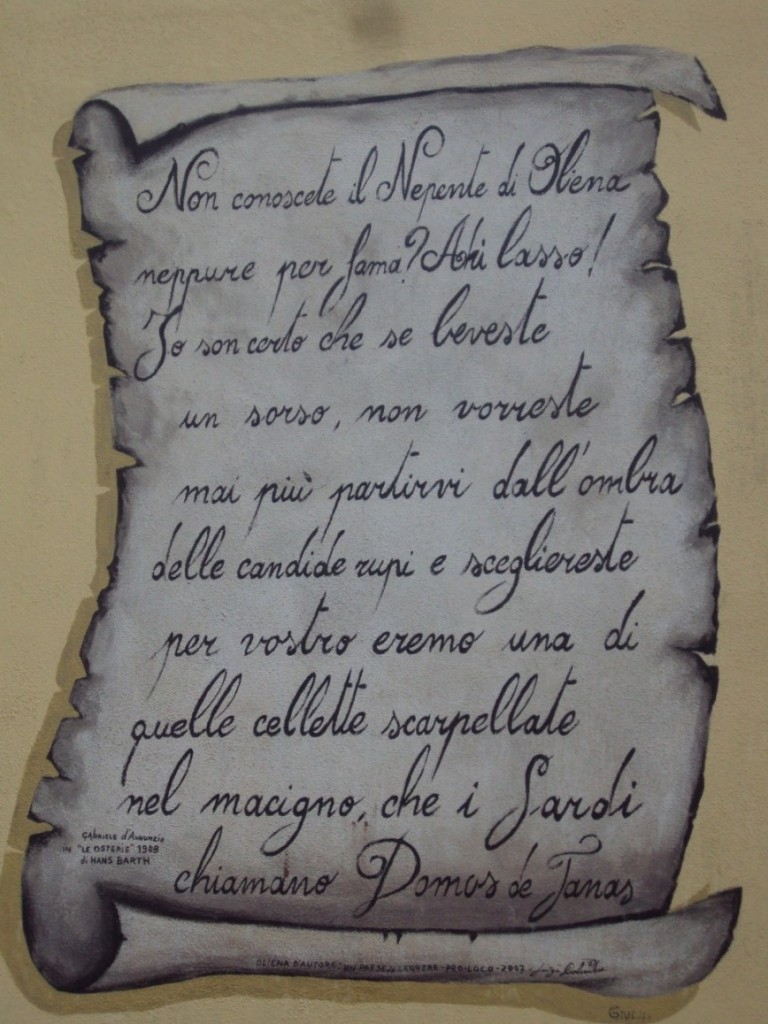 Non conoscete il Nepente di Oliena
neppure per fama? Ahi lasso!
Io son certo che se beveste
un sorso, non vorreste
mai più partirvi dall'ombra
delle candide rupi e scegliereste
per vostro eremo una di
quelle cellette scarpellate
nel macigno, che i Sardi
chiamano Domus de Janas
GABRIELE d'ANNUNZIO
IN "LE OSTERIE" 1909
di HANS BARTH
OLIENA D'AUTORE: UN PAESE da LEGGERE - PRO-LOCO - 2007